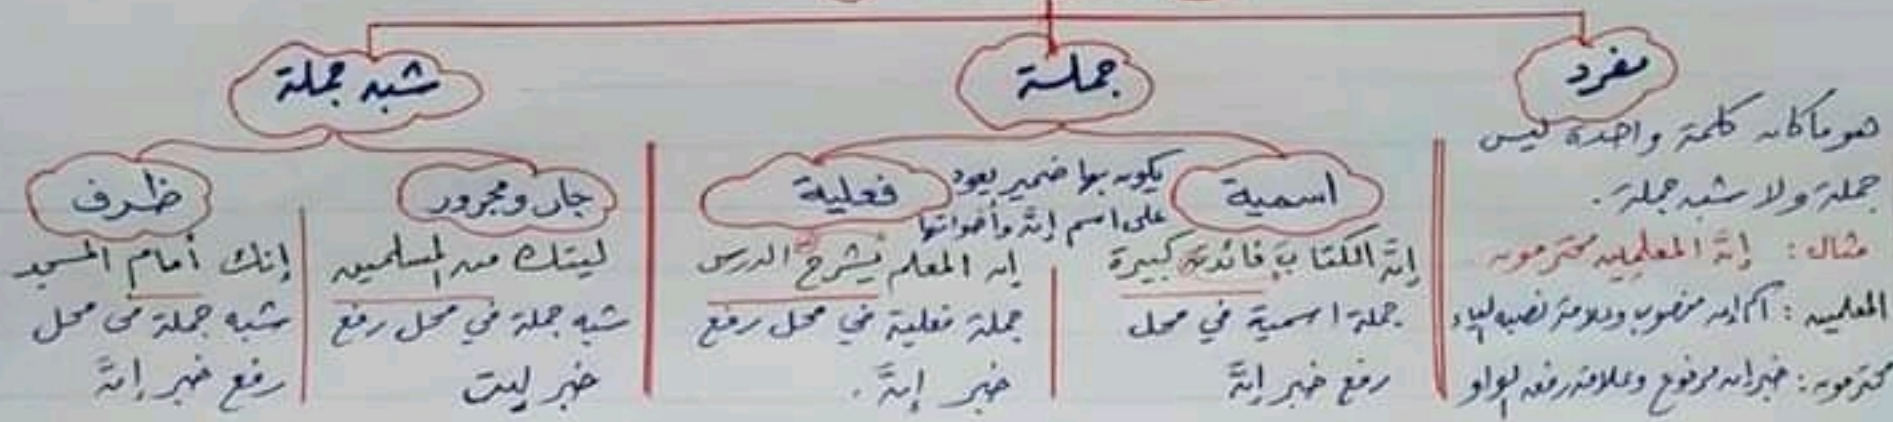 مفرد
هو ما كان كلمة واحدة ليس
جملة ولا شبه جملة.
مثال: إنَّ المعلمين محترمون
المعلمين: اسم إن منصوب وعلامة نصبه الياء
محترمون: خبر إن مرفوع وعلامة رفعه الواو
جملة
يكون بها ضمير يعود
على اسم إنَّ وأخواتها
اسمية
إنَّ الكتابَ فائدته كبيرة
جملة اسمية في محل
رفع خبر إنَّ
فعلية
إن المعلم يشرح الدرس
جملة فعلية في محل رفع
خبر إنَّ.
شبه جملة
جار ومجرور
ليتك من المسلمين
شبه جملة في محل رفع
خبر ليت
ظرف
إنك أمام المسجد
شبه جملة في محل
رفع خبر إنَّ